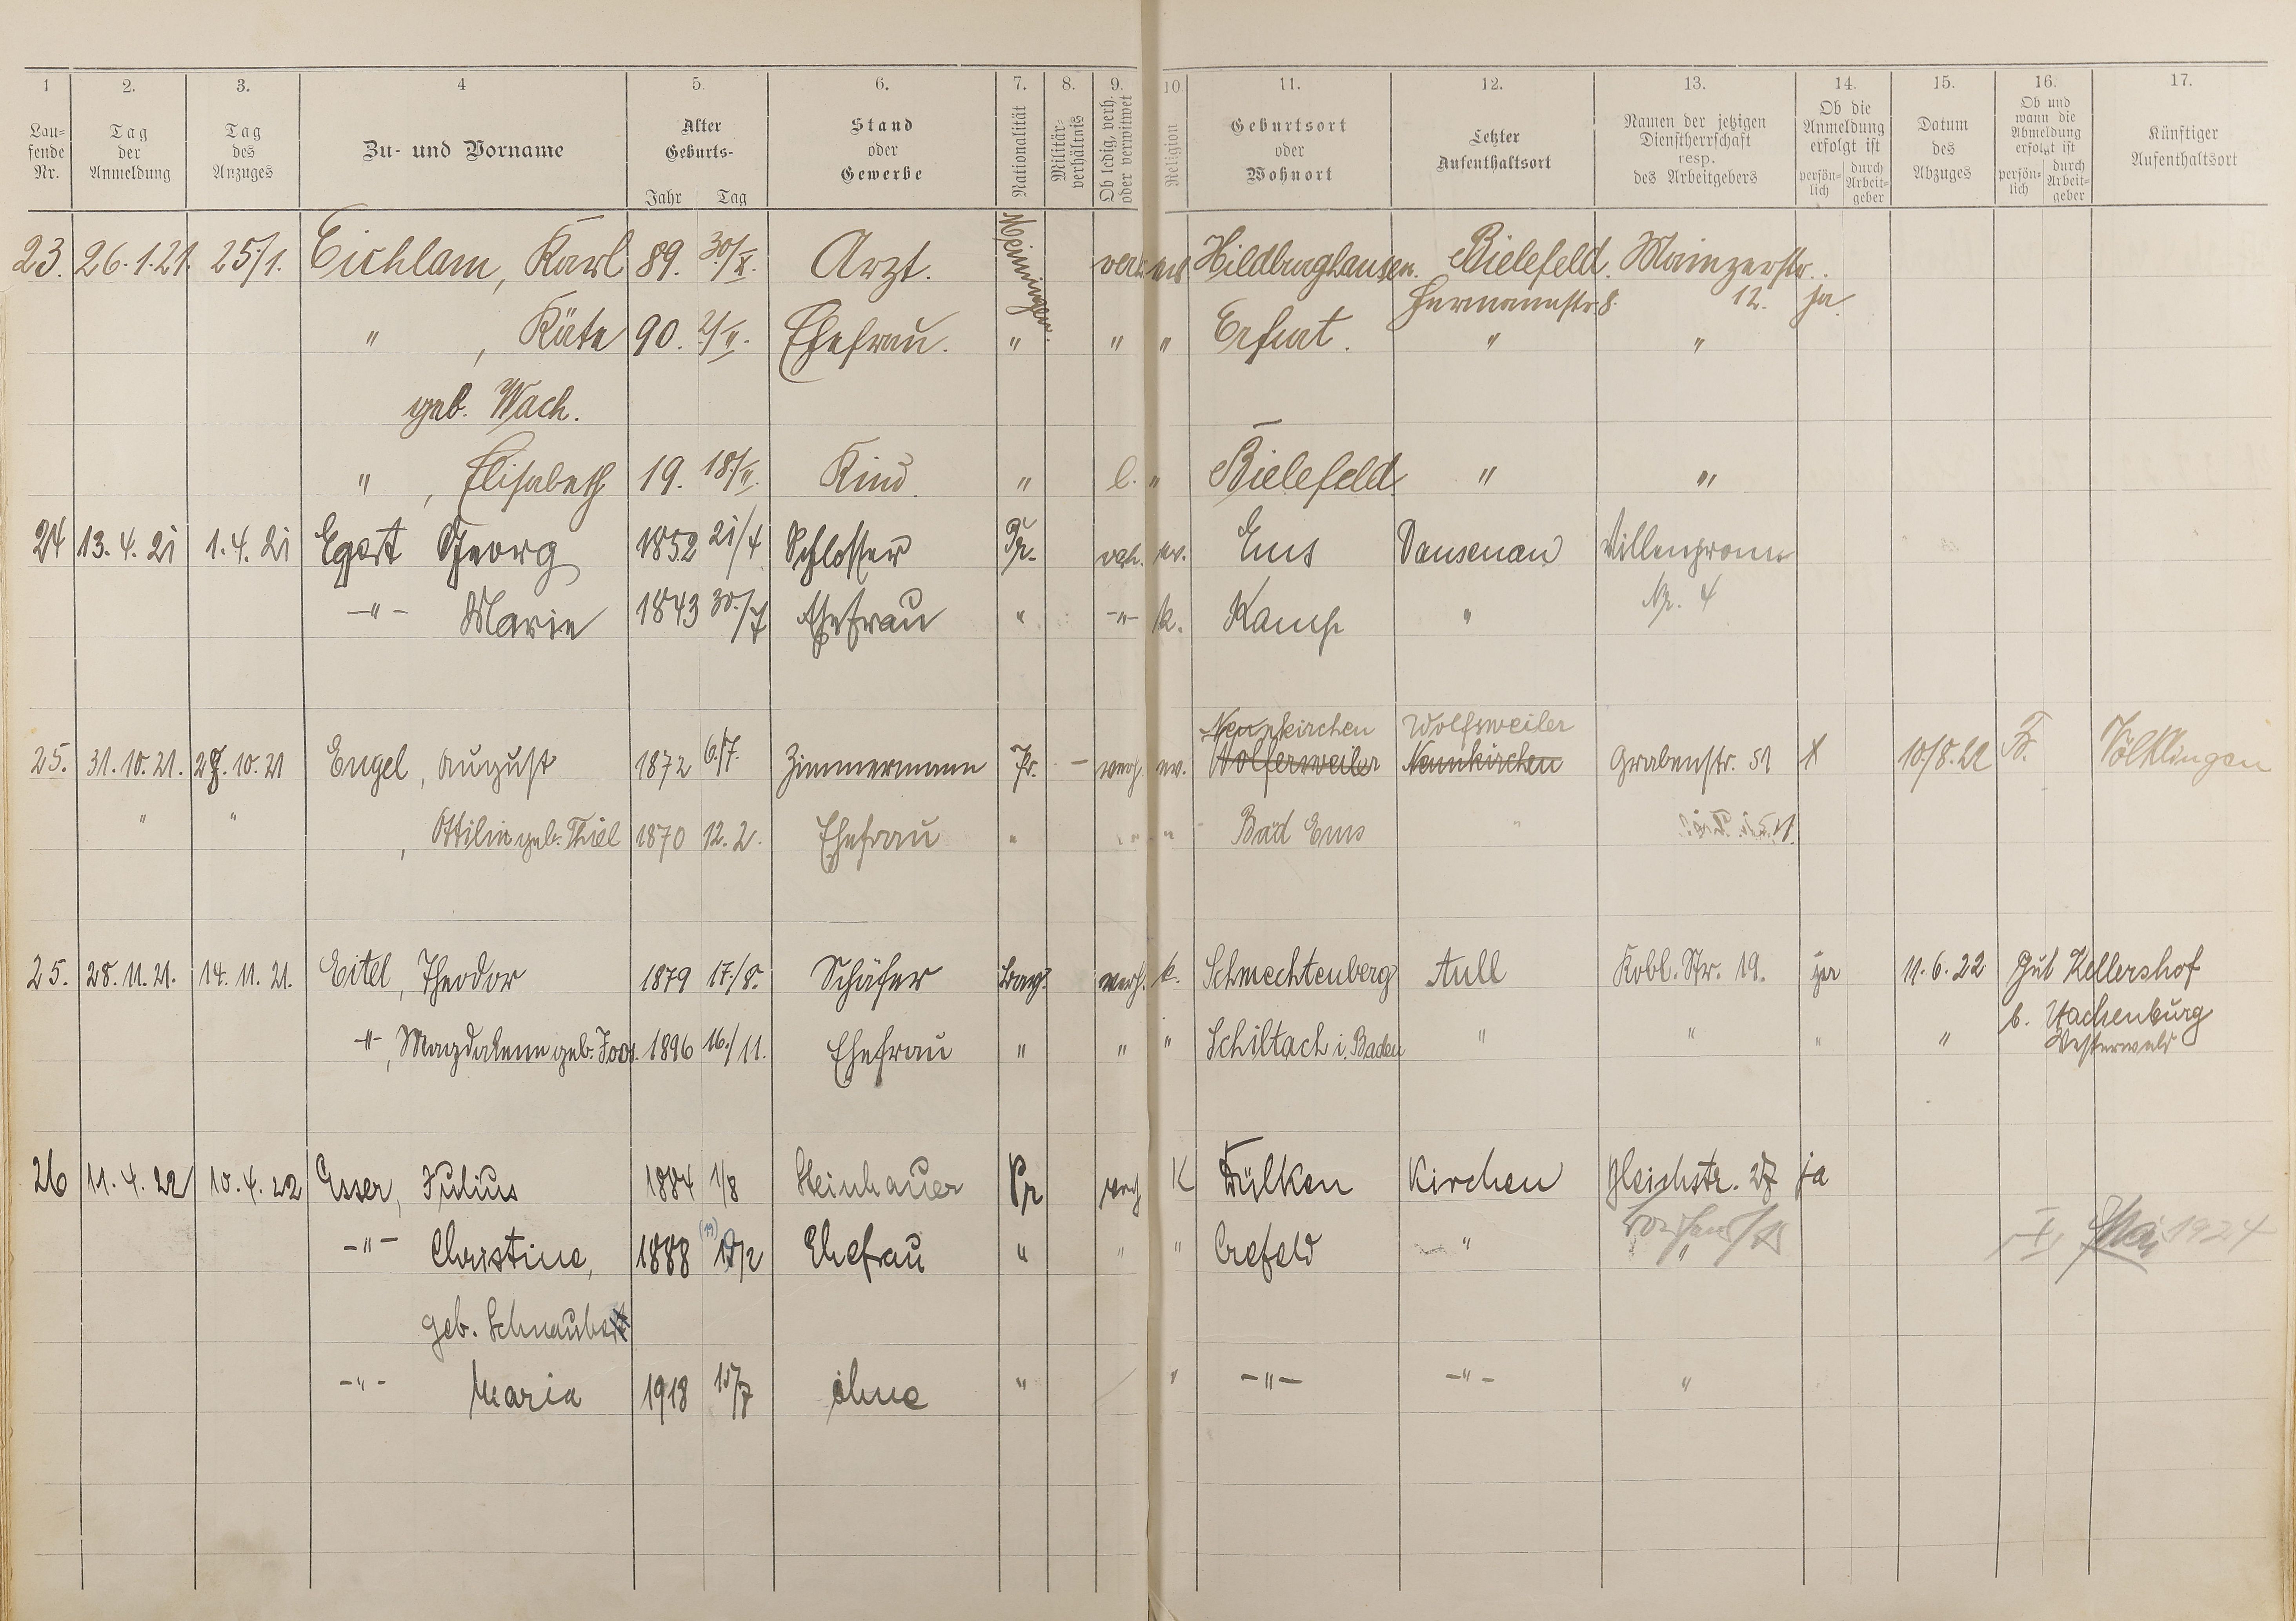 1 2. 3. 4 5. 6. 7. 8. 9. 10 11. 12. 13. 14. 15. 16. 17.
Lau-
fende
Nr.
Tag
der
Anmeldung
Tag
des
Anzuges
Zu- und Vorname
Alter
Geburts-
Jahr Tag
Stand
oder
Gewerbe
Nationalität
Militär-
verhältnis
Ob ledig, verh.
oder verwitwet
Religion
Geburtsort
oder
Wohnort
Letzter
Aufenthaltsort
Namen der jetzigen
Dienstherrschaft
resp.
des Arbeitgebers
Ob die
Anmeldung
erfolgt ist
persön-
lich
durch
Arbeit-
geber
Datum
des
Abzuges
Ob und
wann die
Abmeldung
erfolgt ist
persön-
lich
durch
Arbeit-
geber
Künftiger
Aufenthaltsort
23. 26.1.21. 25/1. Eichlam, Karl 89. 30/X. Arzt. Meiningen. verh. ev. Hildburghausen. Bielefeld. Mainzerstr.
Hermannstr. 8. 12. ja.
" , Käte 90. 2/II. Ehefrau. " " " Erfurt. " "
geb. Wach.
" , Elisabeth 19. 18/II. Kind. " l. " Bielefeld. " "
24 13.4.21 1.4.21 Egert Georg 1852 21/4 Schlosser Pr. verh. ev. Ems Dausenau Villenprom.
Nr. 4
-"- Marie 1843 30./7 Ehefrau " -"- k. Kamp "
Neunkirchen Wolfsweiler
25. 31.10.21. 27.10.21 Engel, August 1872 6./7. Zimmermann Pr. - verh. ev. Wolfersweiler Neunkirchen Grabenstr. 51 X 10./8.22 Fr. Völklingen
" " , Ottilie geb. Thiel 1870 12.2. Ehefrau " " " Bad Ems "
25. 28.11.21. 14.11.21. Eitel, Theodor 1879 17./8. Schäfer Bay. verh. k. Schmechtenberg Aull Kobl. Str. 19. ja 11.6.22 Gut Kellershof
b. Hachenburg
Westerwald
-"-, Magdalene geb. Joos. 1896 16./11. Ehefrau " " " Schiltach i. Baden " " " "
26 11.4.22 10.4.22 Esser, Julius 1884 1/8 Steinhauer Pr verh K Dülken Kirchen Bleichstr. 27 ja
-"- Christine, 1888 (19) /2 Ehefrau " " " Crefeld " " I, Mai 1924
geb. Schnaubert
-"- Maria 1918 15/7 ohne " / " -"- -"- "